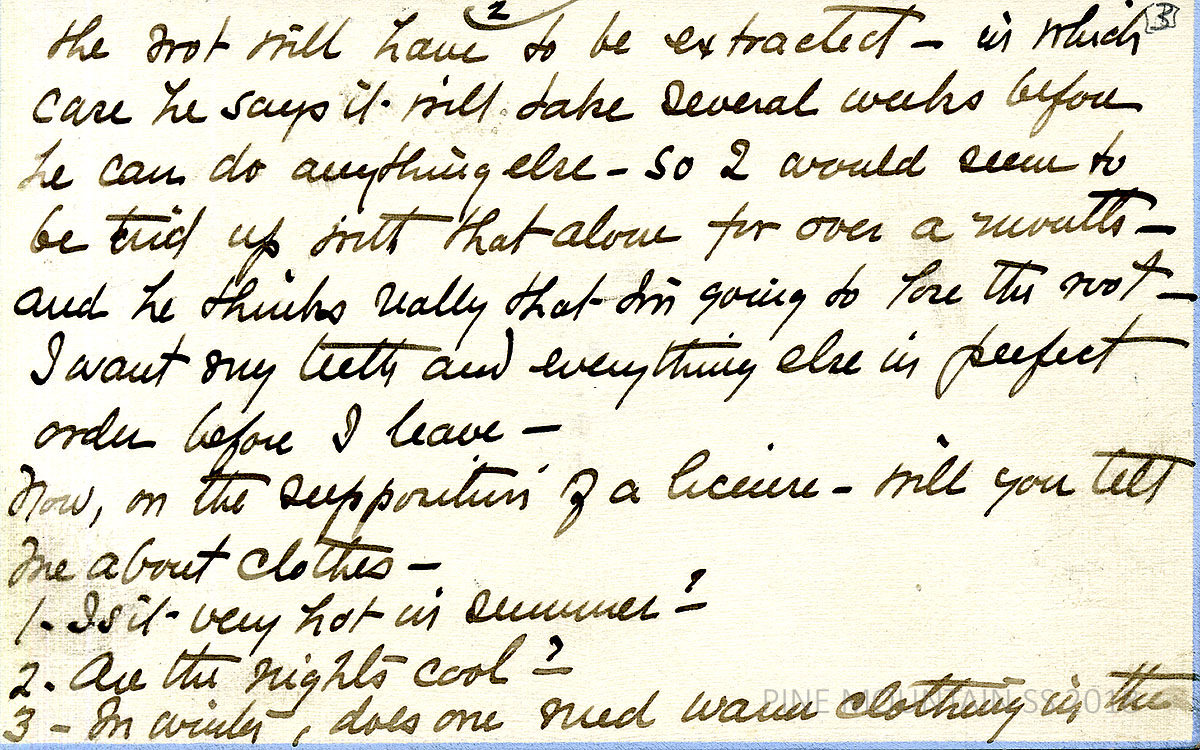 2
3
the root will have to be extracted – in which
case he says it will take several weeks before
he can do anything else – so I would seem to
be tied up with that alone for over a month –
and he thinks really that I'm going to lose the root –
I want my teeth and everything else in perfect
order before I leave –
Now, on the supposition of a license – will you tell
me about clothes –
1. Is it very hot in summer?
2. Are the nights cool?
3 – In winter, does one need warm clothing in the
PINE MOUNTAIN SS 201